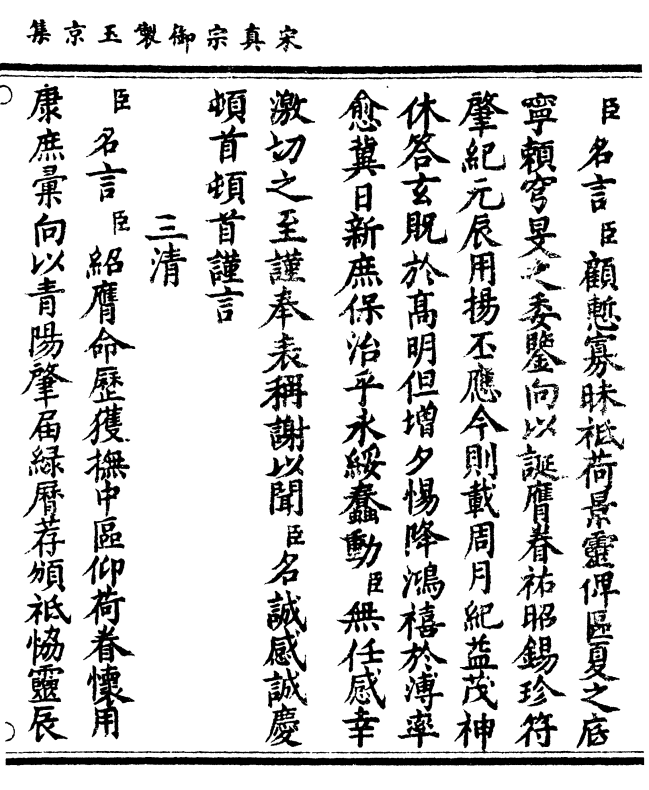 宋真宗御製玉京集
臣名言臣顧慙寡昧祗荷景靈俾區夏之底
寧賴穹旻之委鑒向以誕膺眷祐昭錫珍符
肇紀元辰用揚丕應今則載周月紀益茂神
休答玄貺於高明但增夕惕降鴻禧於溥率
愈冀日新庶保治乎永綏蠢動臣無任感幸
激切之至謹奉表稱謝以聞臣名誠感誠慶
頓首頓首謹言
三清
臣名言臣紹膺命歷獲撫中區仰荷眷懷用
康庶彙向以青陽肇届綠曆荐頒祗恊靈辰